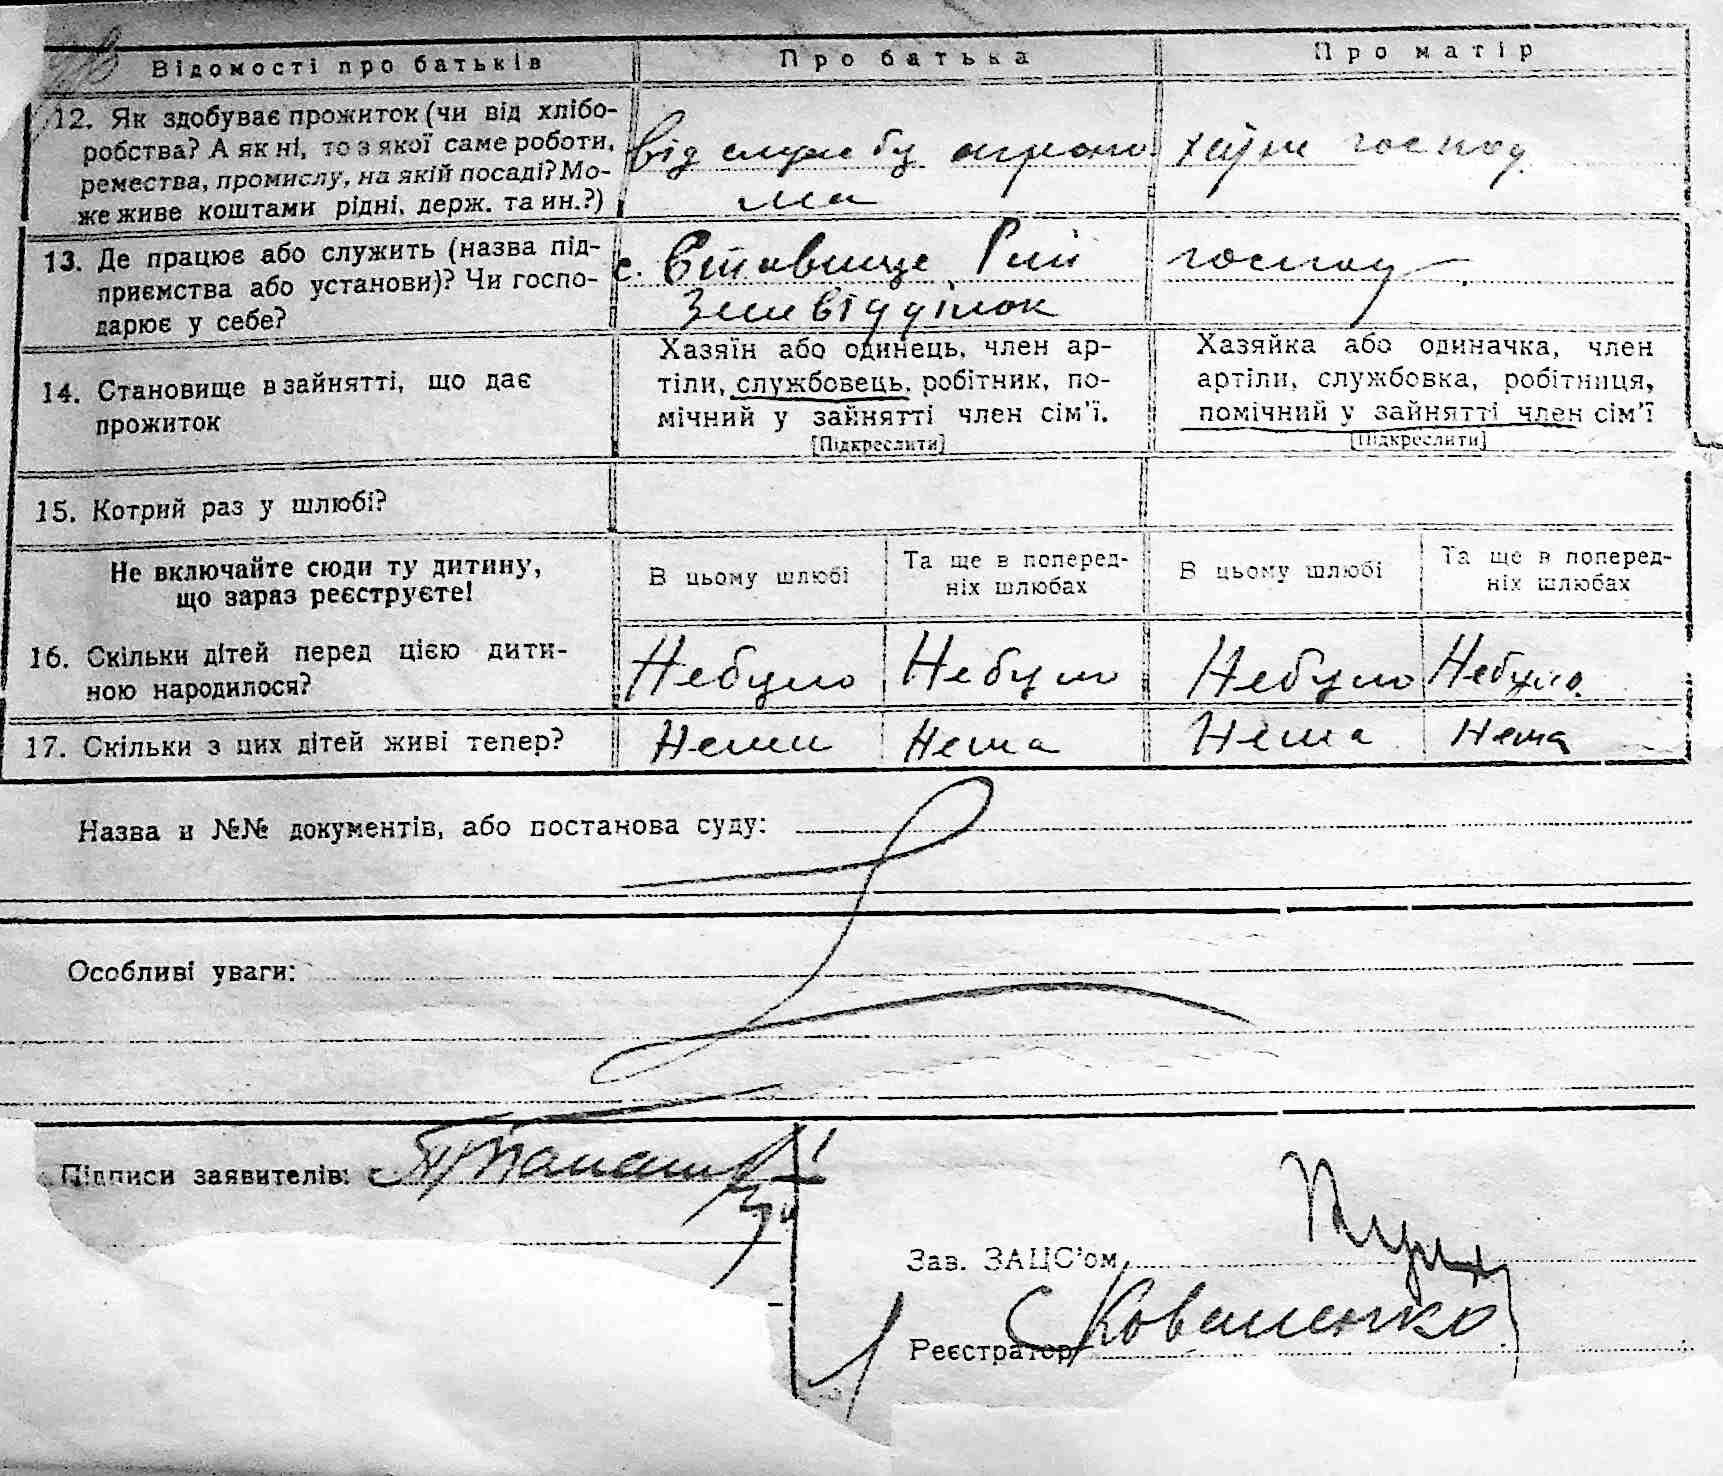 Відомості про батьків
Про батька
Про матір
12. Як здобуває прожиток (чи від хлібо-
робства? А як ні, то з якої саме роботи,
ремества, промислу, на якій посаді? Мо-
же живе коштами рідні, держ. та ин.?)
від служби агроно
ма
хатнє господ.
13. Де працює або служить (назва під-
приємства або установи)? Чи госпо-
дарює у себе?
с. Ставище Рай
Земвідділок
господ
14. Становище в зайнятті, що дає
прожиток
Хазяїн або одинець, член ар-
тіли, службовець, робітник, по-
мічний у зайнятті член сім'ї.
[Підкреслити]
Хазяйка або одиначка, член
артіли, службовка, робітниця,
помічний у зайнятті член сім'ї
[Підкреслити]
15. Котрий раз у шлюбі?
Не включайте сюди ту дитину,
що зараз реєструєте!
В цьому шлюбі
Та ще в поперед-
ніх шлюбах
В цьому шлюбі
Та ще в поперед-
ніх шлюбах
16. Скільки дітей перед цією дити-
ною народилося?
Небуло
Небуло
Небуло
Небуло
17. Скільки з цих дітей живі тепер?
Нема
Нема
Нема
Нема
Назва и №№ документів, або постанова суду:
Особливі уваги:
Підписи заявителів:
Зав. ЗАЦС'ом
Реєстратор
Коваленко